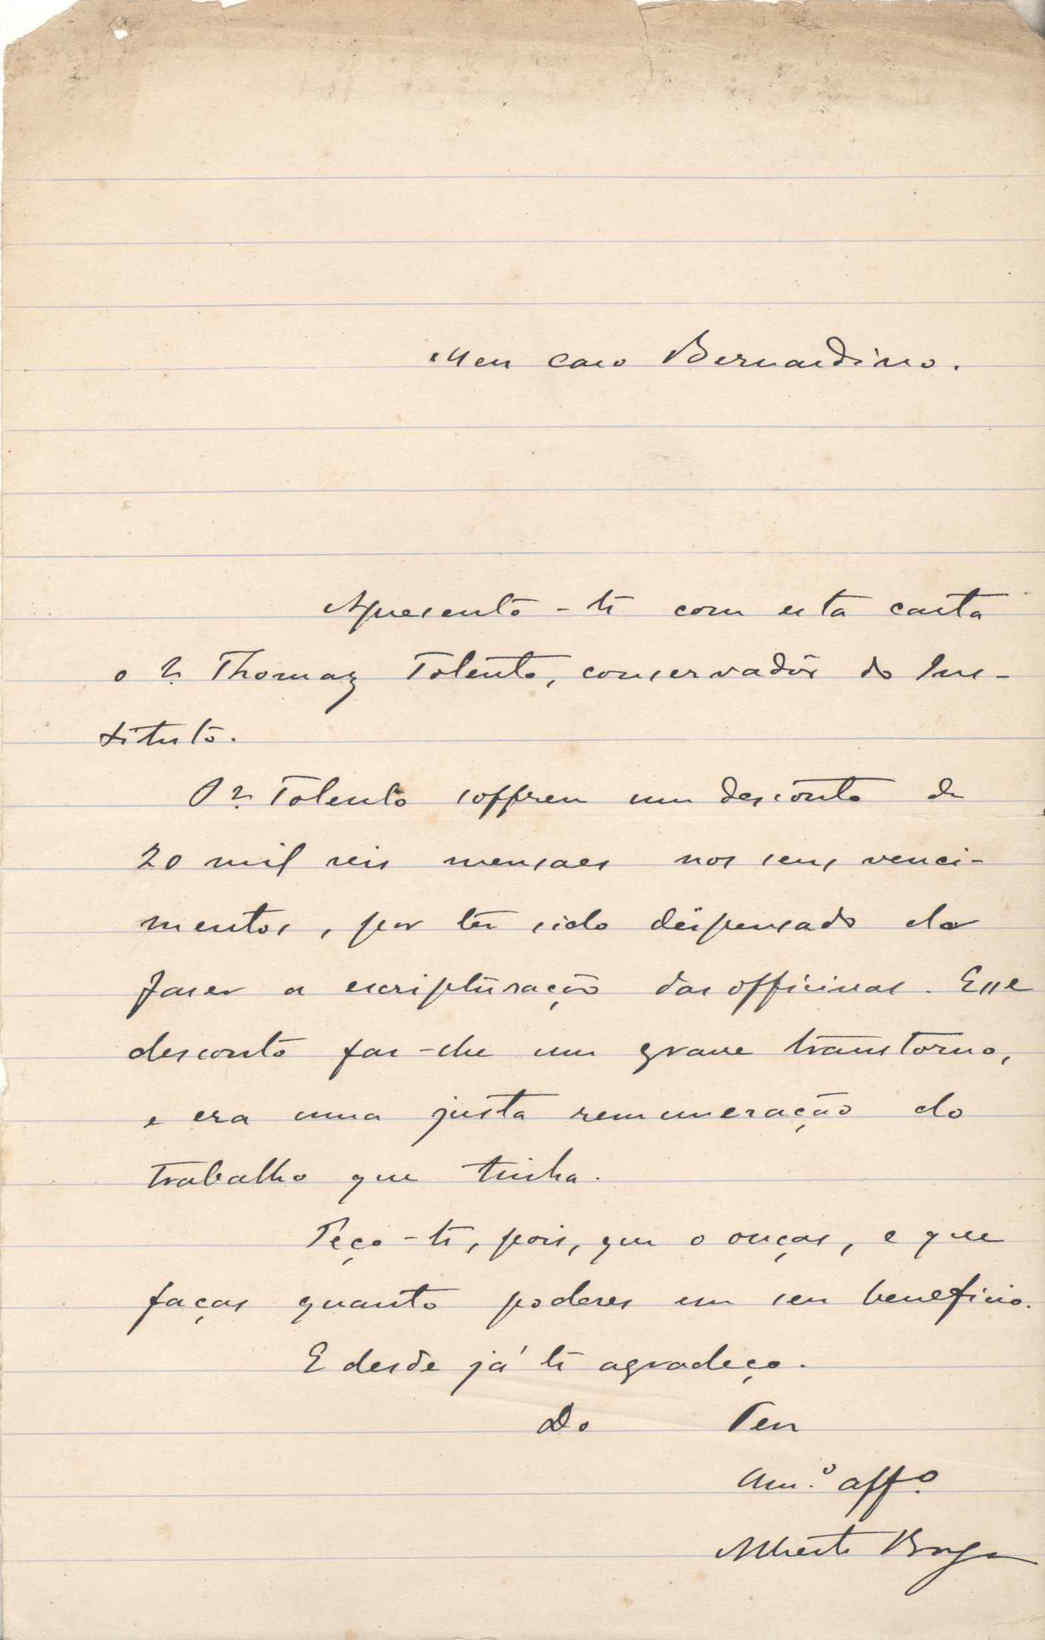 Meu caro Bernardino.
Apresento-te com esta carta
o Sr. Thomaz Tolento, conservador do Ins-
tituto.
O Sr. Tolento soffreu um desconto de
20 mil reis mensaes nos seus venci-
mentos, por ter sido dispensado de
faser a escripturação das officinas. Esse
desconto faz-lhe um grave transtorno,
e era uma justa remuneração do
trabalho que tinha.
Peço-te, pois, que o ouças, e que
faças quanto poderes em seu beneficio.
E desde já te agradeço.
Do Teu
Am.º aff.º
Alberto Braga